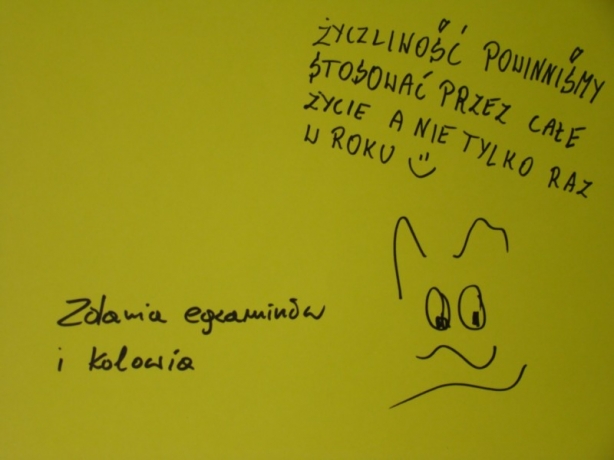 ŻYCZLIWOŚĆ POWINNIŚMY
STOSOWAĆ PRZEZ CAŁE
ŻYCIE A NIE TYLKO RAZ
W ROKU
Zdania egzaminów
i kolowia